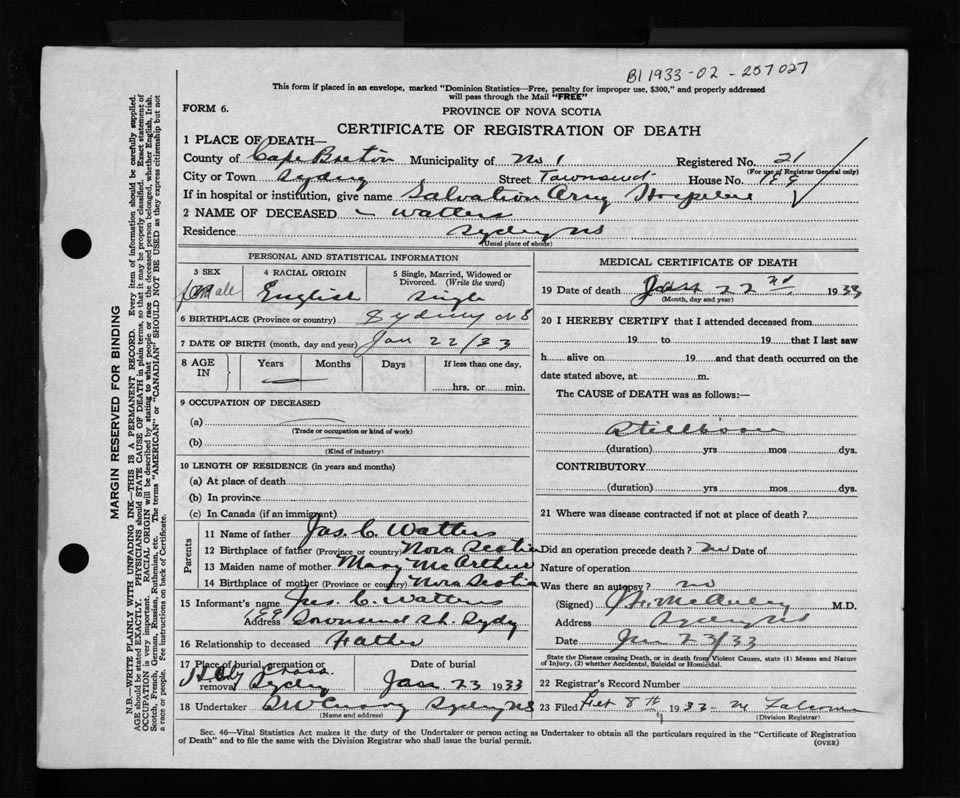 B1 1933-02-257027
This form if placed in an envelope, marked "Dominion Statistics—Free, penalty for improper use, $300," and properly addressed
will pass through the Mail "FREE"
FORM 6.
PROVINCE OF NOVA SCOTIA
CERTIFICATE OF REGISTRATION OF DEATH
1 PLACE OF DEATH—
County of Cape Breton Municipality of No 1 Registered No. 21
(For use of Registrar General only)
City or Town Sydney Street Townsend House No.
If in hospital or institution, give name Salvation Army Hospital
2 NAME OF DECEASED — Watters
Residence Sydney NS
(Usual place of abode)
PERSONAL AND STATISTICAL INFORMATION
3 SEX 4 RACIAL ORIGIN 5 Single, Married, Widowed or
Divorced. (Write the word)
English Single
6 BIRTHPLACE (Province or country) Sydney NS
7 DATE OF BIRTH (month, day and year) Jan 22/33
8 AGE IN Years Months Days If less than one day,
hrs. or min.
9 OCCUPATION OF DECEASED
(a)
(Trade or occupation or kind of work)
(b)
(Kind of industry)
10 LENGTH OF RESIDENCE (in years and months)
(a) At place of death
(b) In province
(c) In Canada (if an immigrant)
Parents
11 Name of father Jas. C. Watters
12 Birthplace of father (Province or country) Nova Scotia
13 Maiden name of mother Mary McArthur
14 Birthplace of mother (Province or country) Nova Scotia
15 Informant's name Jas. C. Watters
Address Townsend St. Sydney
16 Relationship to deceased Father
17 Place of burial, cremation or Date of burial
removal Holy Cross Sydney Jan 23 1933
18 Undertaker Sydney NS
(Name and address)
MEDICAL CERTIFICATE OF DEATH
19 Date of death Jan 22nd 1933
(Month, day and year)
20 I HEREBY CERTIFY that I attended deceased from
19 to 19 that I last saw
h alive on 19 and that death occurred on the
date stated above, at m.
The CAUSE of DEATH was as follows:—
Stillborn
(duration) yrs mos dys.
CONTRIBUTORY
(duration) yrs mos dys.
21 Where was disease contracted if not at place of death?
Did an operation precede death? no Date of
Nature of operation
Was there an autopsy? no
(Signed) McAuley M.D.
Address Sydney NS
Date Jan 23/33
State the Disease causing Death, or in death from Violent Causes, state (1) Means and Nature
of Injury, (2) whether Accidental, Suicidal or Homicidal.
22 Registrar's Record Number
23 Filed Feb 8th 1933
(Division Registrar)
Sec. 46—Vital Statistics Act makes it the duty of the Undertaker or person acting as Undertaker to obtain all the particulars required in the "Certificate of Registration
of Death" and to file the same with the Division Registrar who shall issue the burial permit.
(OVER)
MARGIN RESERVED FOR BINDING
N.B.—WRITE PLAINLY WITH UNFADING INK—THIS IS A PERMANENT RECORD. Every item of information should be carefully supplied.
AGE should be stated EXACTLY. PHYSICIANS should STATE CAUSE OF DEATH in plain terms, so that it may be properly classified. Exact statement of
OCCUPATION is very important. RACIAL ORIGIN will be described by stating to what people or race the deceased person belonged, whether English, Irish,
Scotch, French, German, Russian, Ruthenian, etc. The terms "AMERICAN" or "CANADIAN" SHOULD NOT BE USED as they express citizenship but not
a race or people. Fee instructions on back of Certificate.